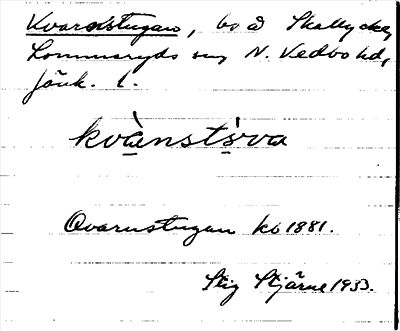 Kvarnstugan, bs å Skallycke,
Lommaryds sn, N. Vedbo hd,
Jönk. l.
kvànstùva
Qvarnstugan kb 1881.
Stig Stjärne 1933.